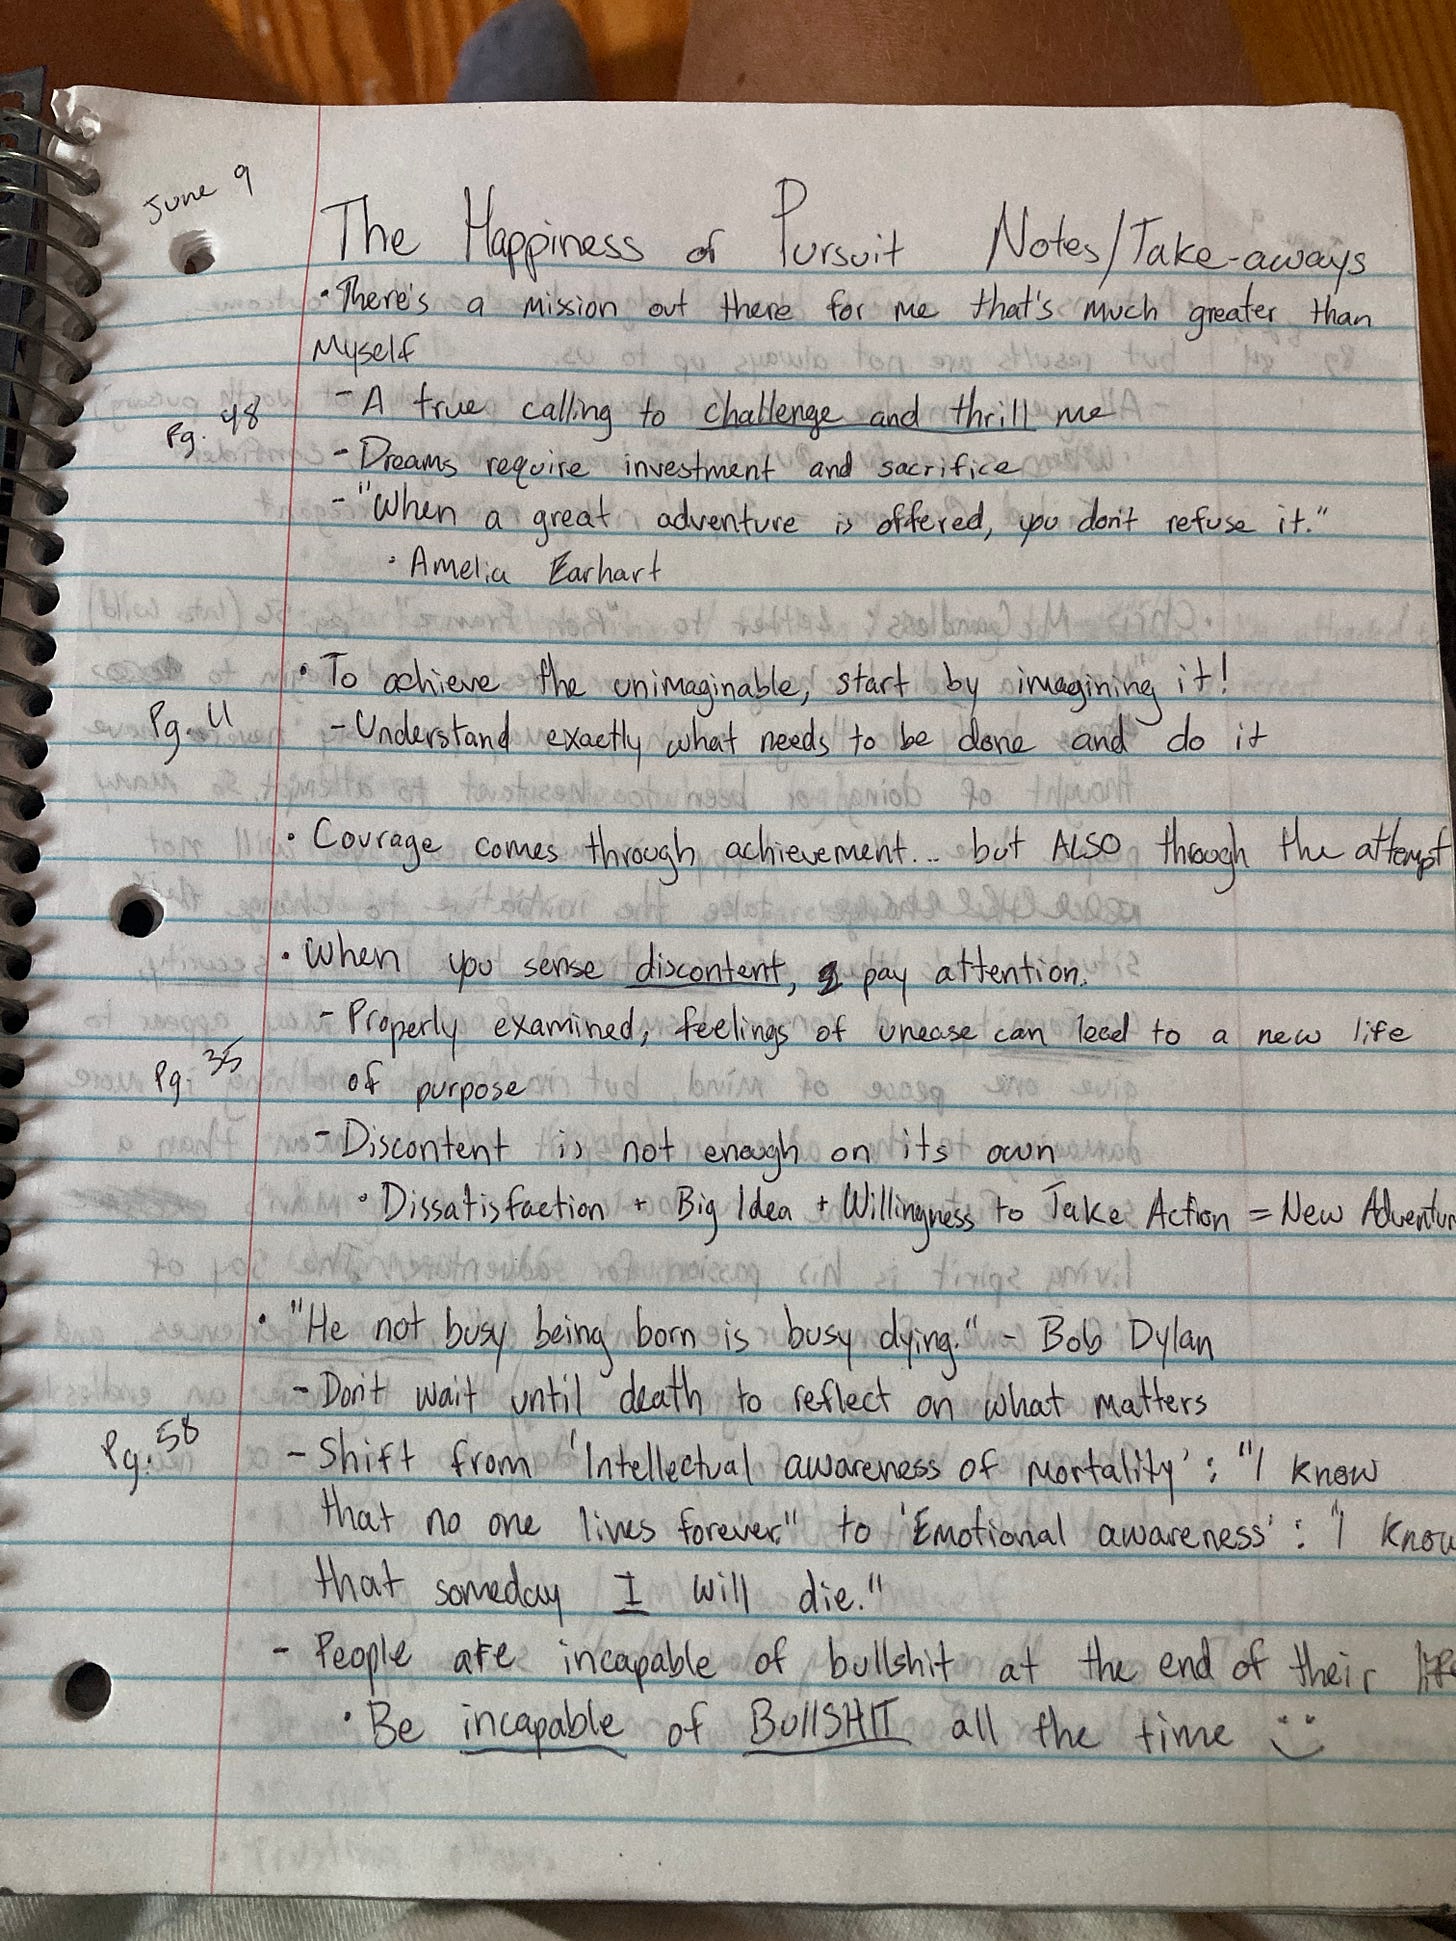 June 9
The Happiness of Pursuit Notes/Take-aways
• There's a mission out there for me that's much greater than
Myself
- A true calling to challenge and thrill me
Pg. 48
- Dreams require investment and sacrifice
- "When a great adventure is offered, you don't refuse it."
• Amelia Earhart
• To achieve the unimaginable, start by imagining it!
Pg. 11
- Understand exactly what needs to be done and do it
• Courage comes through achievement... but ALSO through the attempt
• When you sense discontent, pay attention.
- Properly examined, feelings of unease can lead to a new life
Pg. 35
of purpose
- Discontent is not enough on its own
• Dissatisfaction + Big Idea + Willingness to Take Action = New Adventur
• "He not busy being born is busy dying." - Bob Dylan
- Don't wait until death to reflect on what matters
Pg. 58
- Shift from 'Intellectual awareness of mortality': "I know
that no one lives forever." to 'Emotional awareness': "I know
that someday I will die."
- People are incapable of bullshit at the end of their life
• Be incapable of BullSHIT all the time